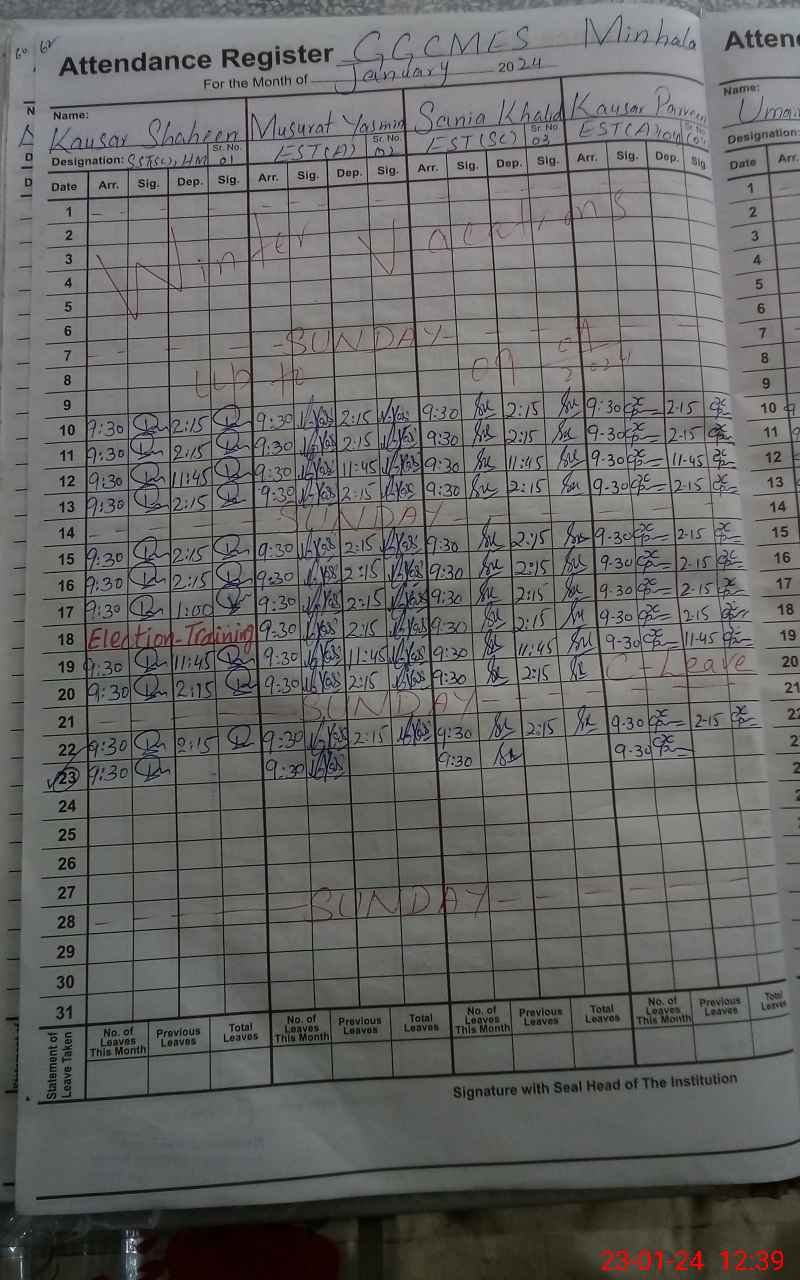 60 62
Attendance Register GGCMES Minhala
For the Month of January 2024
Name: Kausar Shaheen Musurat Yasmin Sania Khalid Kausar Parveen
Designation: SST(SC), HM Sr. No. 01 EST(A) Sr. No. 02 EST(SC) Sr. No 03 EST(A) Sr. No
Date Arr. Sig. Dep. Sig. Arr. Sig. Dep. Sig. Arr. Sig. Dep. Sig. Arr. Sig. Dep. Sig.
1
2 Winter Vacations
3
4
5
6
7 SUNDAY
8 up to
9
10 9:30 2:15 9:30 2:15 9:30 2:15 9:30 2-15
11 9:30 2:15 9:30 2:15 9:30 2:15 9-30 2-15
12 9:30 11:45 9:30 11:45 9:30 11:45 9-30 11-45
13 9:30 2:15 9:30 2:15 9:30 2:15 9-30 2-15
14 SUNDAY
15 9:30 2:15 9:30 2:15 9:30 2:15 9-30 2-15
16 9:30 2:15 9:30 2:15 9:30 2:15 9-30 2-15
17 9:30 1:00 9:30 2:15 9:30 2:15 9-30 2-15
18 Election Training 9:30 2:15 9:30 2:15 9-30 2-15
19 9:30 11:45 9:30 11:45 9:30 11:45 9-30 11-45
20 9:30 2:15 9:30 2:15 9:30 2:15 C-Leave
21 SUNDAY
22 9:30 2:15 9:30 2:15 9:30 2:15 9-30 2-15
23 9:30 9:30 9:30 9-30
24
25
26
27
28 SUNDAY
29
30
31
Statement of Leave Taken
No. of Leaves This Month Previous Leaves Total Leaves No. of Leaves This Month Previous Leaves Total Leaves No. of Leaves This Month Previous Leaves Total Leaves No. of Leaves This Month Previous Leaves Total Leaves
Signature with Seal Head of The Institution
Atten
Name: Umai
Designation:
Date Arr.
1
2
3
4
5
6
7
8
9
10
11
12
13
14
15
16
17
18
19
20
21
23-01-24 12:39